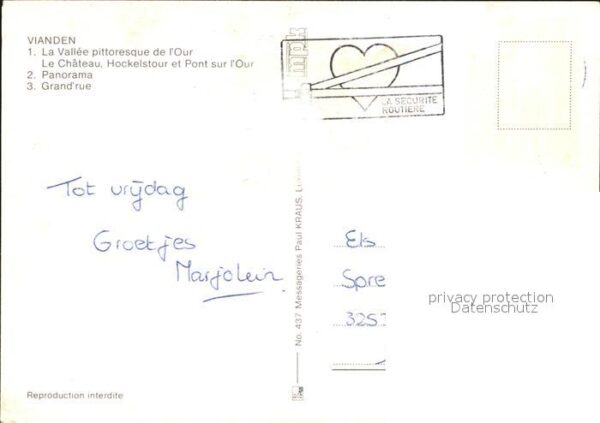 VIANDEN
1. La Vallée pittoresque de l'Our
Le Château, Hockelstour et Pont sur l'Our
2. Panorama
3. Grand'rue
LA SÉCURITÉ
ROUTIÈRE
Tot vrijdag
Groetjes
Marjolein
No. 437 Messageries Paul KRAUS,
Els
Spre
325
privacy protection
Datenschutz
Reproduction interdite